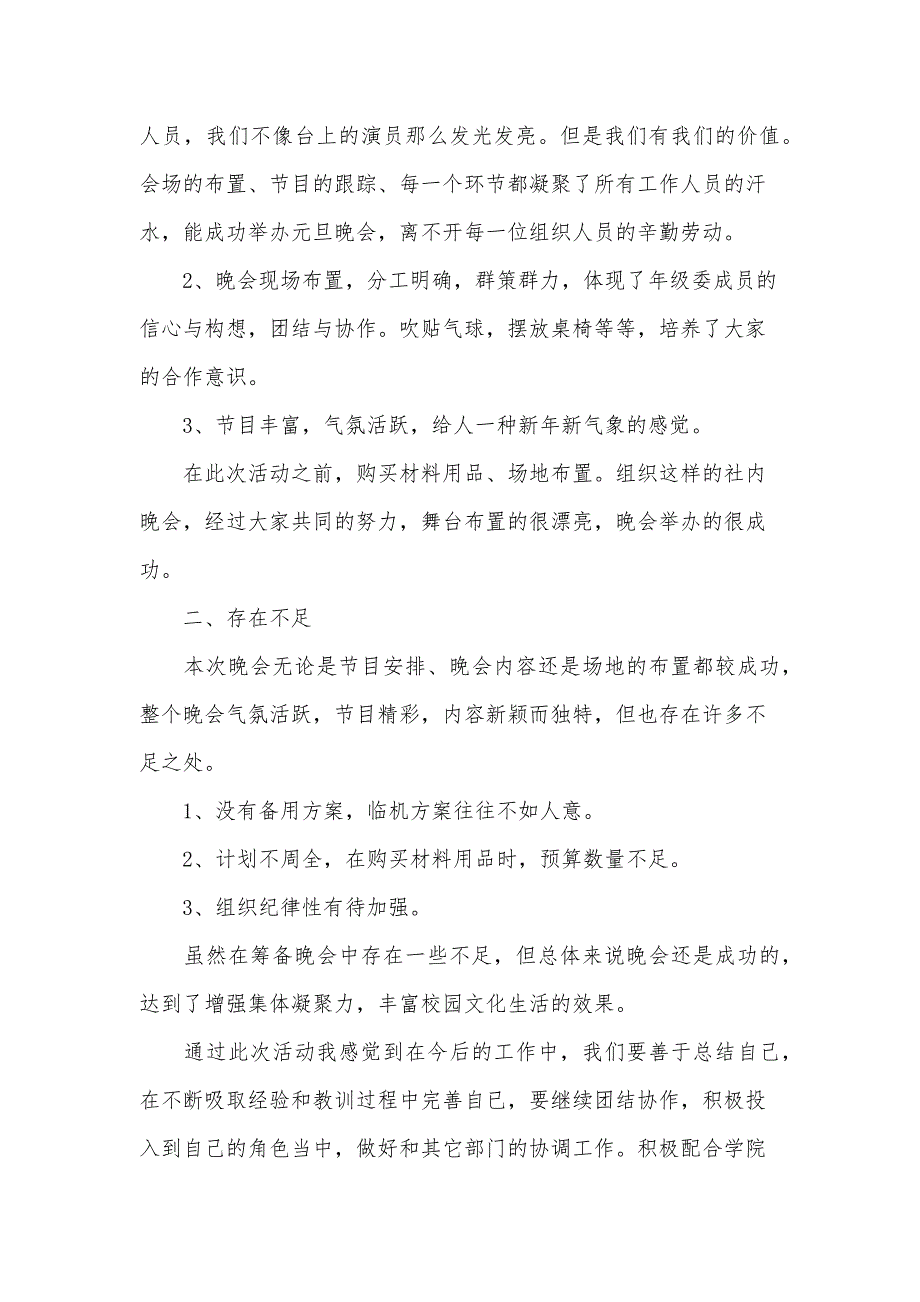 人员，我们不像台上的演员那么发光发亮。但是我们有我们的价值。
会场的布置、节目的跟踪、每一个环节都凝聚了所有工作人员的汗
水，能成功举办元旦晚会，离不开每一位组织人员的辛勤劳动。
2、晚会现场布置，分工明确，群策群力，体现了年级委成员的
信心与构想，团结与协作。吹贴气球，摆放桌椅等等，培养了大家
的合作意识。
3、节目丰富，气氛活跃，给人一种新年新气象的感觉。
在此次活动之前，购买材料用品、场地布置。组织这样的社内
晚会，经过大家共同的努力，舞台布置的很漂亮，晚会举办的很成
功。
二、存在不足
本次晚会无论是节目安排、晚会内容还是场地的布置都较成功，
整个晚会气氛活跃，节目精彩，内容新颖而独特，但也存在许多不
足之处。
1、没有备用方案，临机方案往往不如人意。
2、计划不周全，在购买材料用品时，预算数量不足。
3、组织纪律性有待加强。
虽然在筹备晚会中存在一些不足，但总体来说晚会还是成功的，
达到了增强集体凝聚力，丰富校园文化生活的效果。
通过此次活动我感觉到在今后的工作中，我们要善于总结自己，
在不断吸取经验和教训过程中完善自已，要继续团结协作，积极投
入到自己的角色当中，做好和其它部门的协调工作。积极配合学院